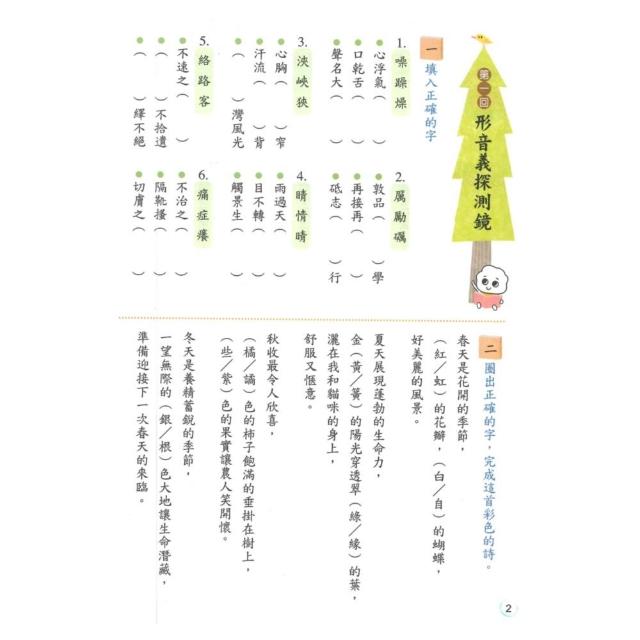 第一回
形音義探測鏡
一 填入正確的字
1. 噪 躁 燥
心浮氣( )
口乾舌( )
聲名大( )
2. 厲 勵 礪
敦品( )學
再接再( )
砥志( )行
3. 浹 峽 狹
心胸( )窄
汗流( )背
( )灣風光
4. 睛 情 晴
雨過天( )
目不轉( )
觸景生( )
5. 絡 路 客
不速之( )
( )不拾遺
( )繹不絕
6. 痛 症 癢
不治之( )
隔靴搔( )
切膚之( )
二 圈出正確的字,完成這首彩色的詩。
春天是花開的季節,
(紅/虹)的花瓣,(白/自)的蝴蝶,
好美麗的風景。
夏天展現蓬勃的生命力,
金(黃/簧)的陽光穿透翠(綠/緣)的葉,
灑在我和貓咪的身上,
舒服又愜意。
秋收最令人欣喜,
(橘/譎)色的柿子飽滿的垂掛在樹上,
(些/紫)色的果實讓農人笑開懷。
冬天是養精蓄銳的季節,
一望無際的(銀/根)色大地讓生命潛藏,
準備迎接下一次春天的來臨。
2